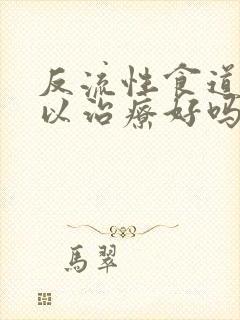 反流性食道
以治療好吗
馬翠